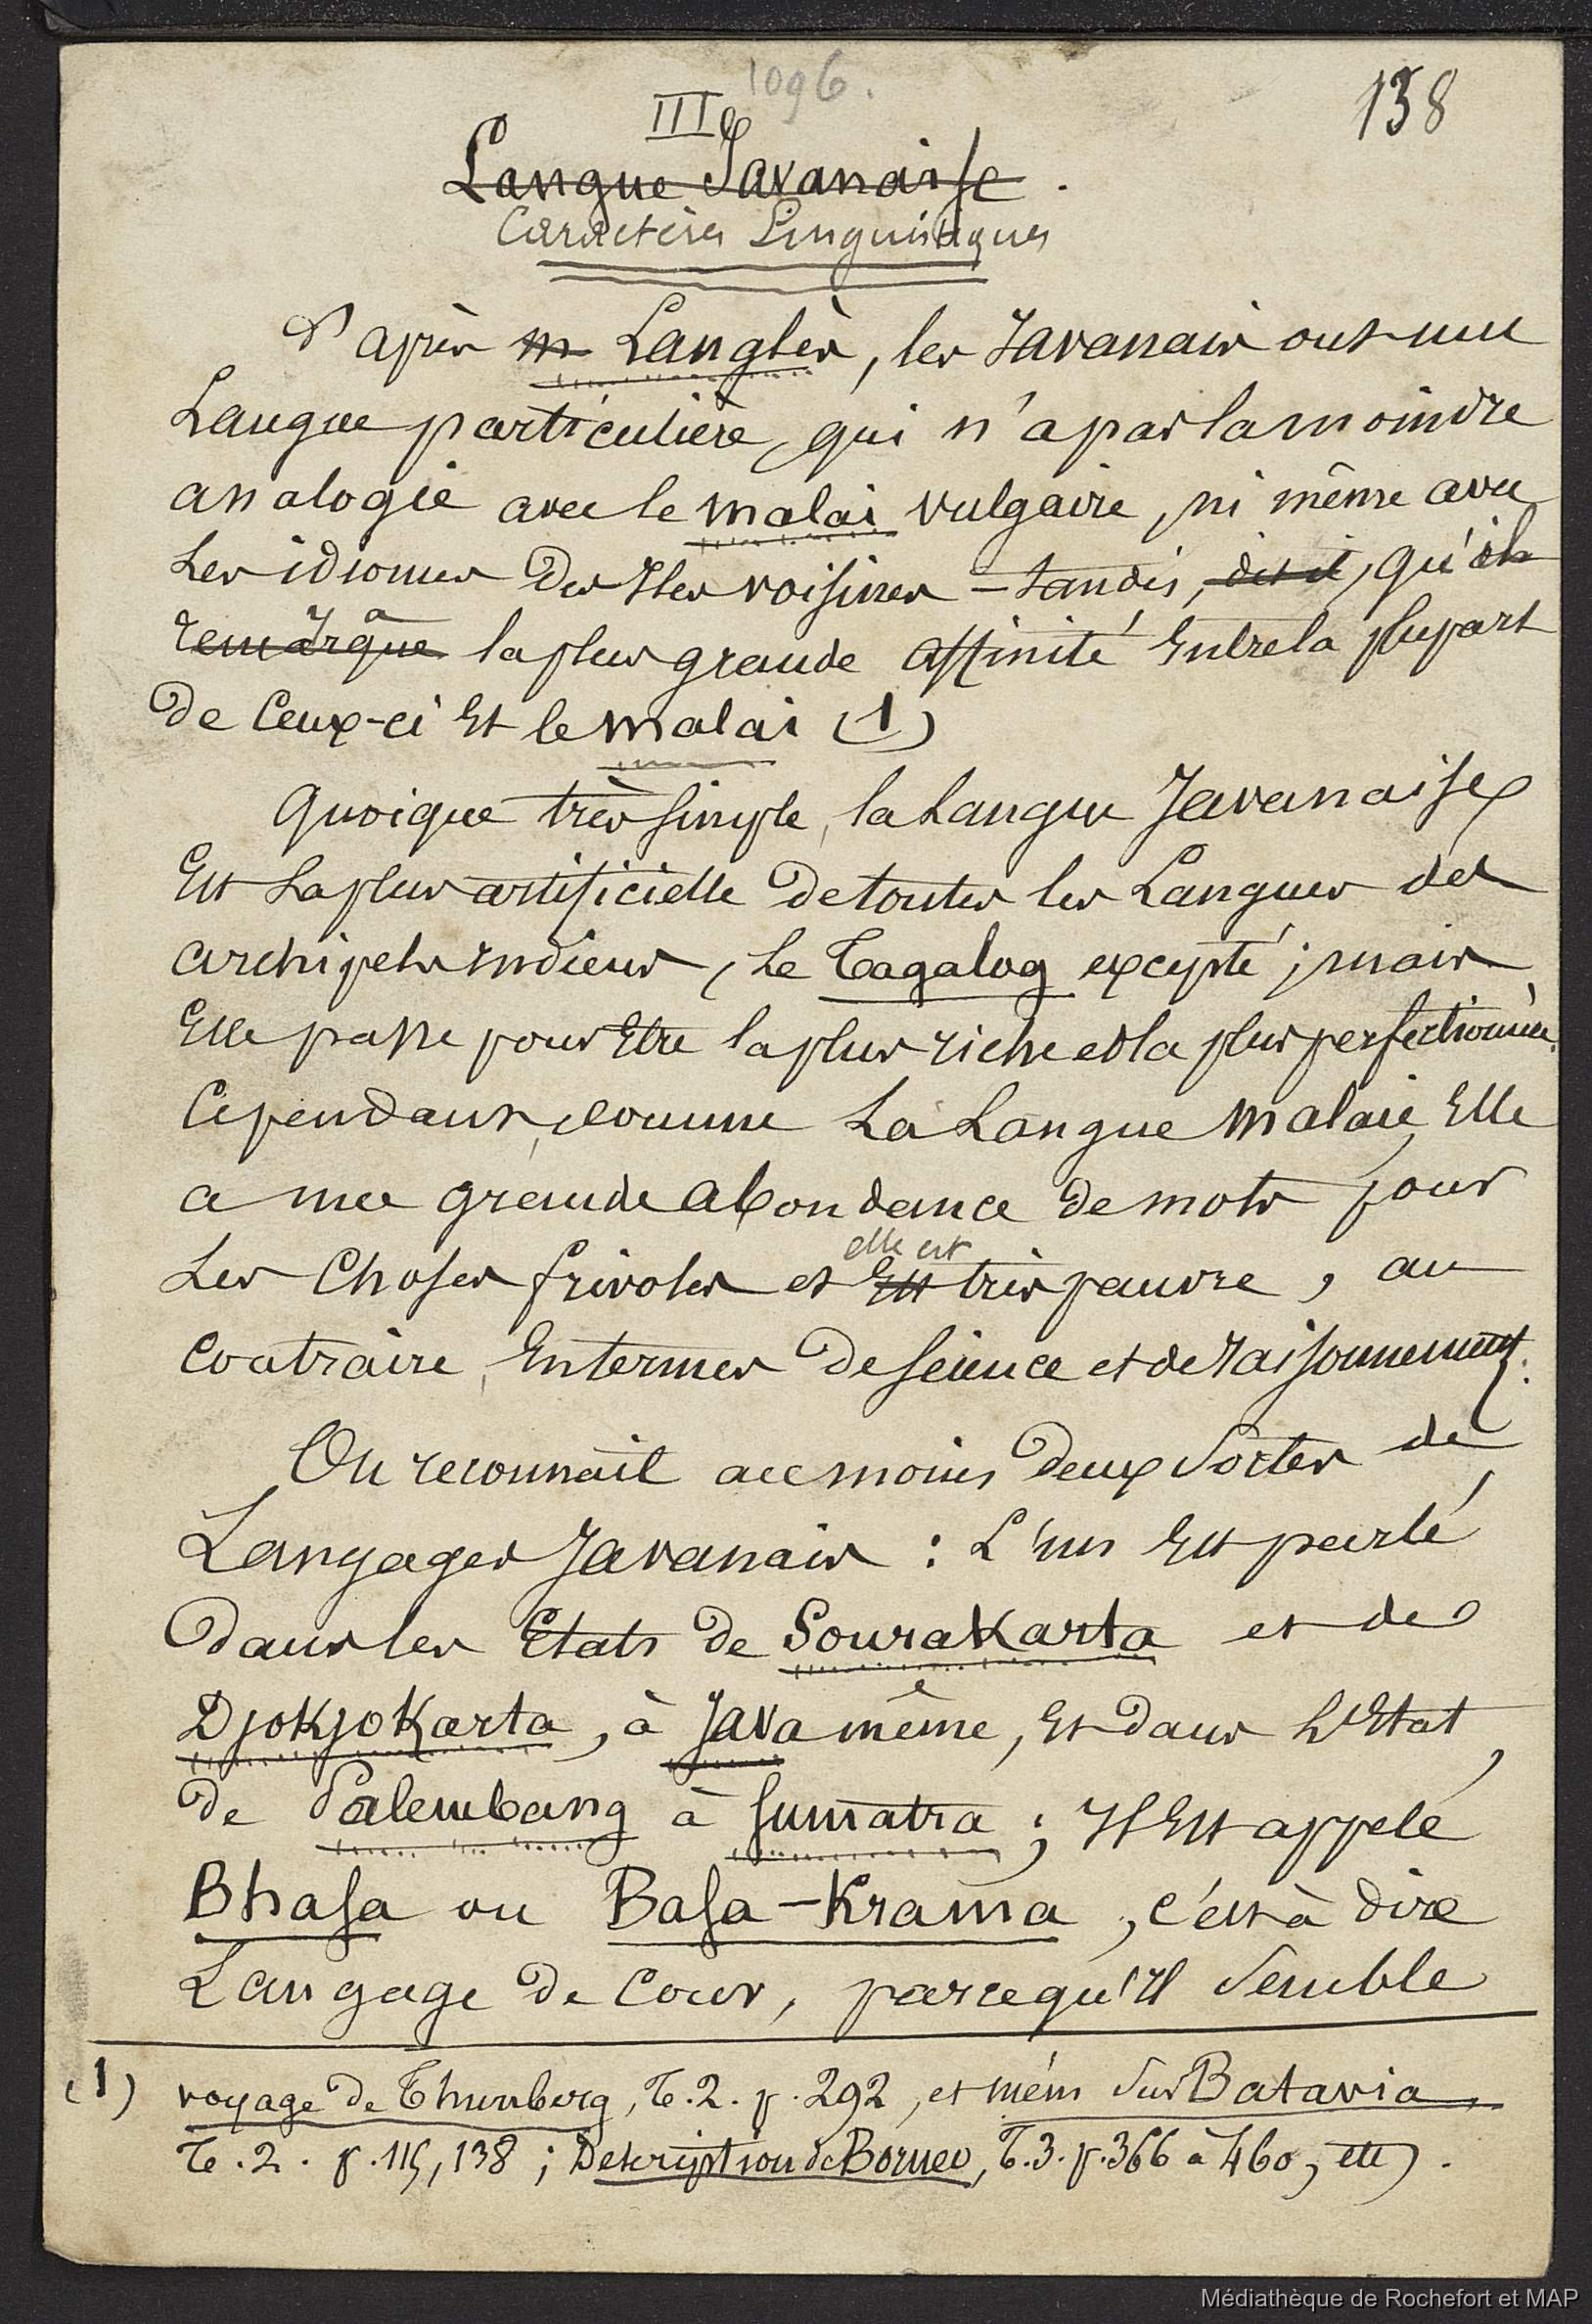 1096.
138
III
Langue Javanaise.
Caractères Linguistiques
D'après M Langlès, les Javanais ont une
Langue particulière, qui n'a pas la moindre
analogie avec le malai vulgaire, ni même avec
Les idiomes des Iles voisines - tandis, dit il, qu'il
remarque la plus grande affinité Entre la plupart
de Ceux-ci Et le malai (1)
Quoique très simple, la Langue Javanaise
Est La plus artificielle de toutes les Langues des
archipels indiens, Le Tagalog excepté ; mais
Elle passe pour Etre la plus riche et la plus perfectionnée.
Cependant, comme La Langue malaie, Elle
a une grande abondance de mots pour
Les Choses frivoles et Est elle est très pauvre, au
Contraire, En termes de science et de raisonnement.
On reconnait au moins deux Sortes de
Langages Javanais : L'un Est parlé
dans les Etats de Sourakarta et de
Djokjokarta, à Java même, Et dans L'Etat
de Palembang à Sumatra ; Il Est appelé
Bhasa ou Basa-Krama, c'est à dire
Langage de Cour, parcequ'Il Semble
(1) voyage de Thunberg, T.2. p.292, et mém Sur Batavia,
T.2. p.115, 138 ; Description de Borneo, T.3. p.366 à 460, etc).
Médiathèque de Rochefort et MAP